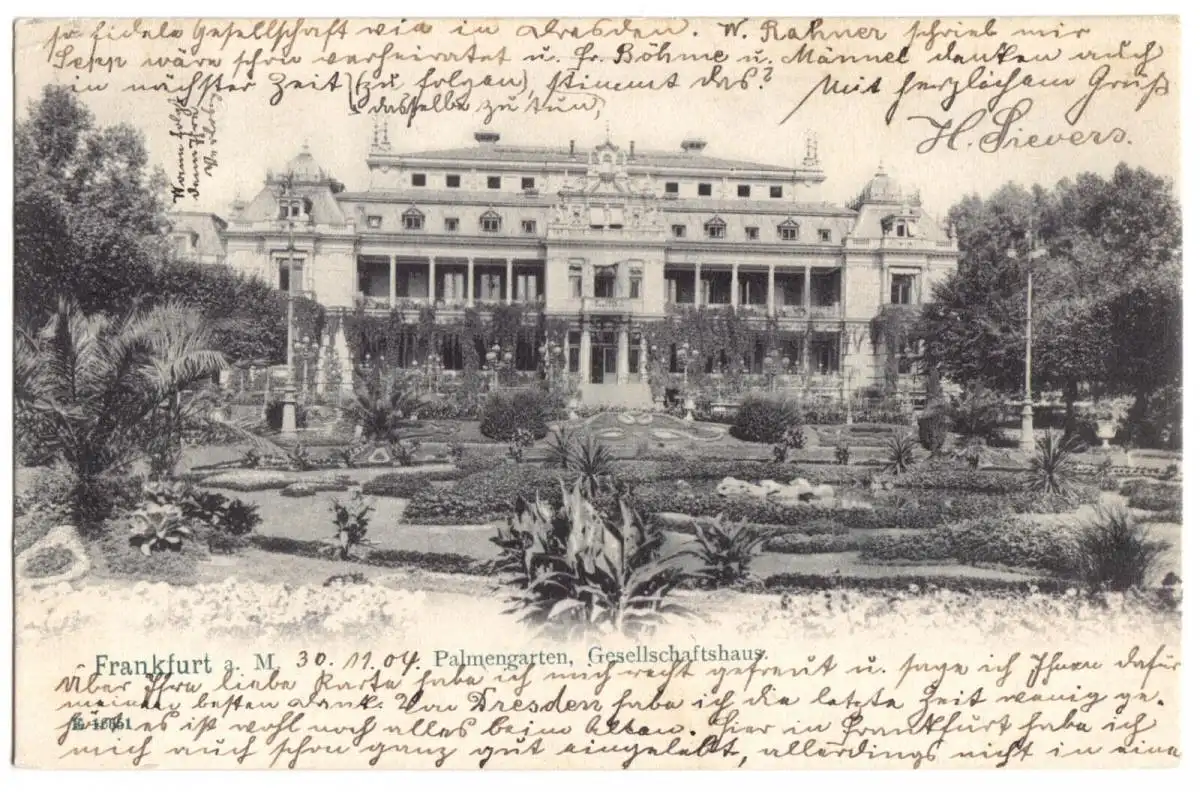 so fidele Gesellschaft wie in Dresden. W. Rahner schrieb mir
Sepp wäre schon verheiratet u. Fr. Böhme u. Männel denken auch
in nächster Zeit (zu folgen), stimmt das? Mit herzlichem Gruß
dasselbe zu tun,
H. Sievers.
Wann folgt
denn Ihre
Frankfurt a. M. 30. 11. 04. Palmengarten, Gesellschaftshaus.
Über Ihre liebe Karte habe ich mich recht gefreut u. sage ich Ihnen dafür
meinen besten Dank. Von Dresden habe ich die letzte Zeit wenig ge-
hört, es ist wohl noch alles beim Alten. Hier in Frankfurt habe ich
mich auch schon ganz gut eingelebt, allerdings nicht in eine